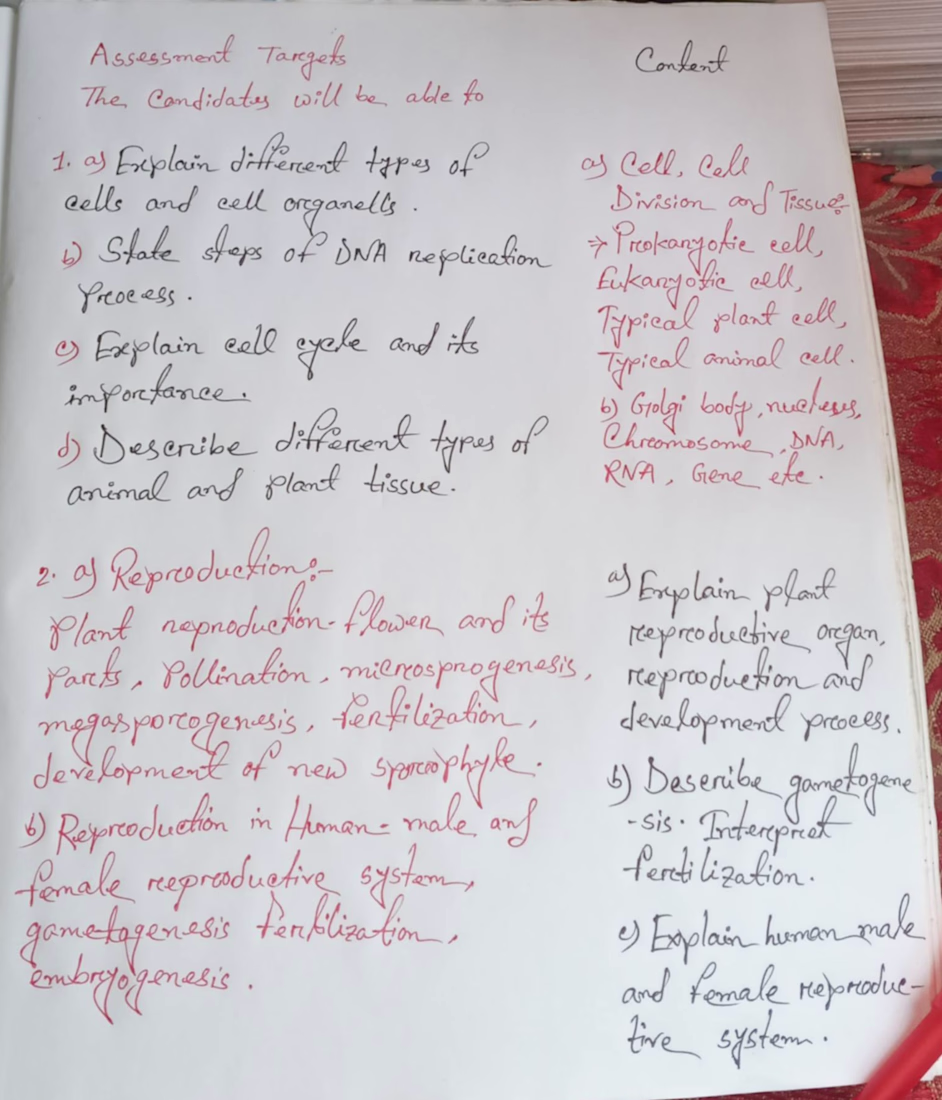 Assessment Targets
The Candidates will be able to
1. a) Explain different types of
cells and cell organells.
b) State steps of DNA replication
process.
c) Explain cell cycle and its
importance.
d) Describe different types of
animal and plant tissue.
2. a) Reproduction:-
Plant reproduction-flower and its
parts, Pollination, microsprogenesis,
megasporogenesis, fertilization,
development of new sporophyte.
b) Reproduction in Human- male and
female reproductive system,
gametogenesis fertilization,
embryogenesis.
Content
a) Cell, Cell
Division and Tissue:-
→ Prokaryotic cell,
Eukaryotic cell,
Typical plant cell,
Typical animal cell.
b) Golgi body, nucleus,
Chromosome, DNA,
RNA, Gene etc.
a) Explain plant
reproductive organ,
reproduction and
development process.
b) Describe gametogene
-sis. Interpret
fertilization.
c) Explain human male
and female reproduc-
tive system.